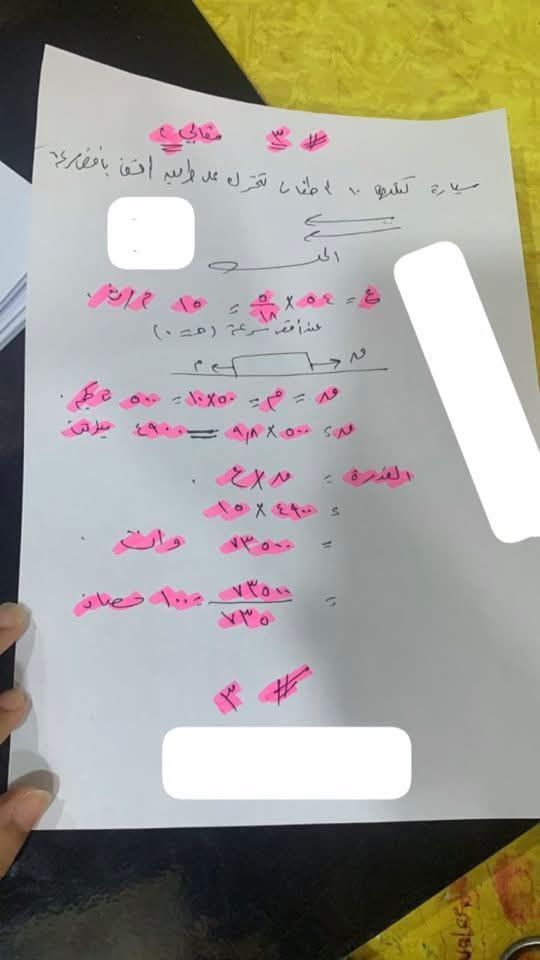 # ٣ مقالي ٢
سيارة كتلتها ١٠ أطنان تتحرك على طريق أفقي بأقصى سرعة
الحل
ع = ٥٤ × ٥/١٨ = ١٥ م/ث
عند أقصى سرعة (حـ = ٠)
م ق
ق = م = ٥٠ × ١٠ = ٥٠٠ ث كجم
ق = ٥٠٠ × ٩,٨ = ٤٩٠٠ نيوتن
القدرة = ق × ع
= ٤٩٠٠ × ١٥
= ٧٣٥٠٠ وات
= ٧٣٥٠٠/٧٣٥ = ١٠٠ حصان
# ٣